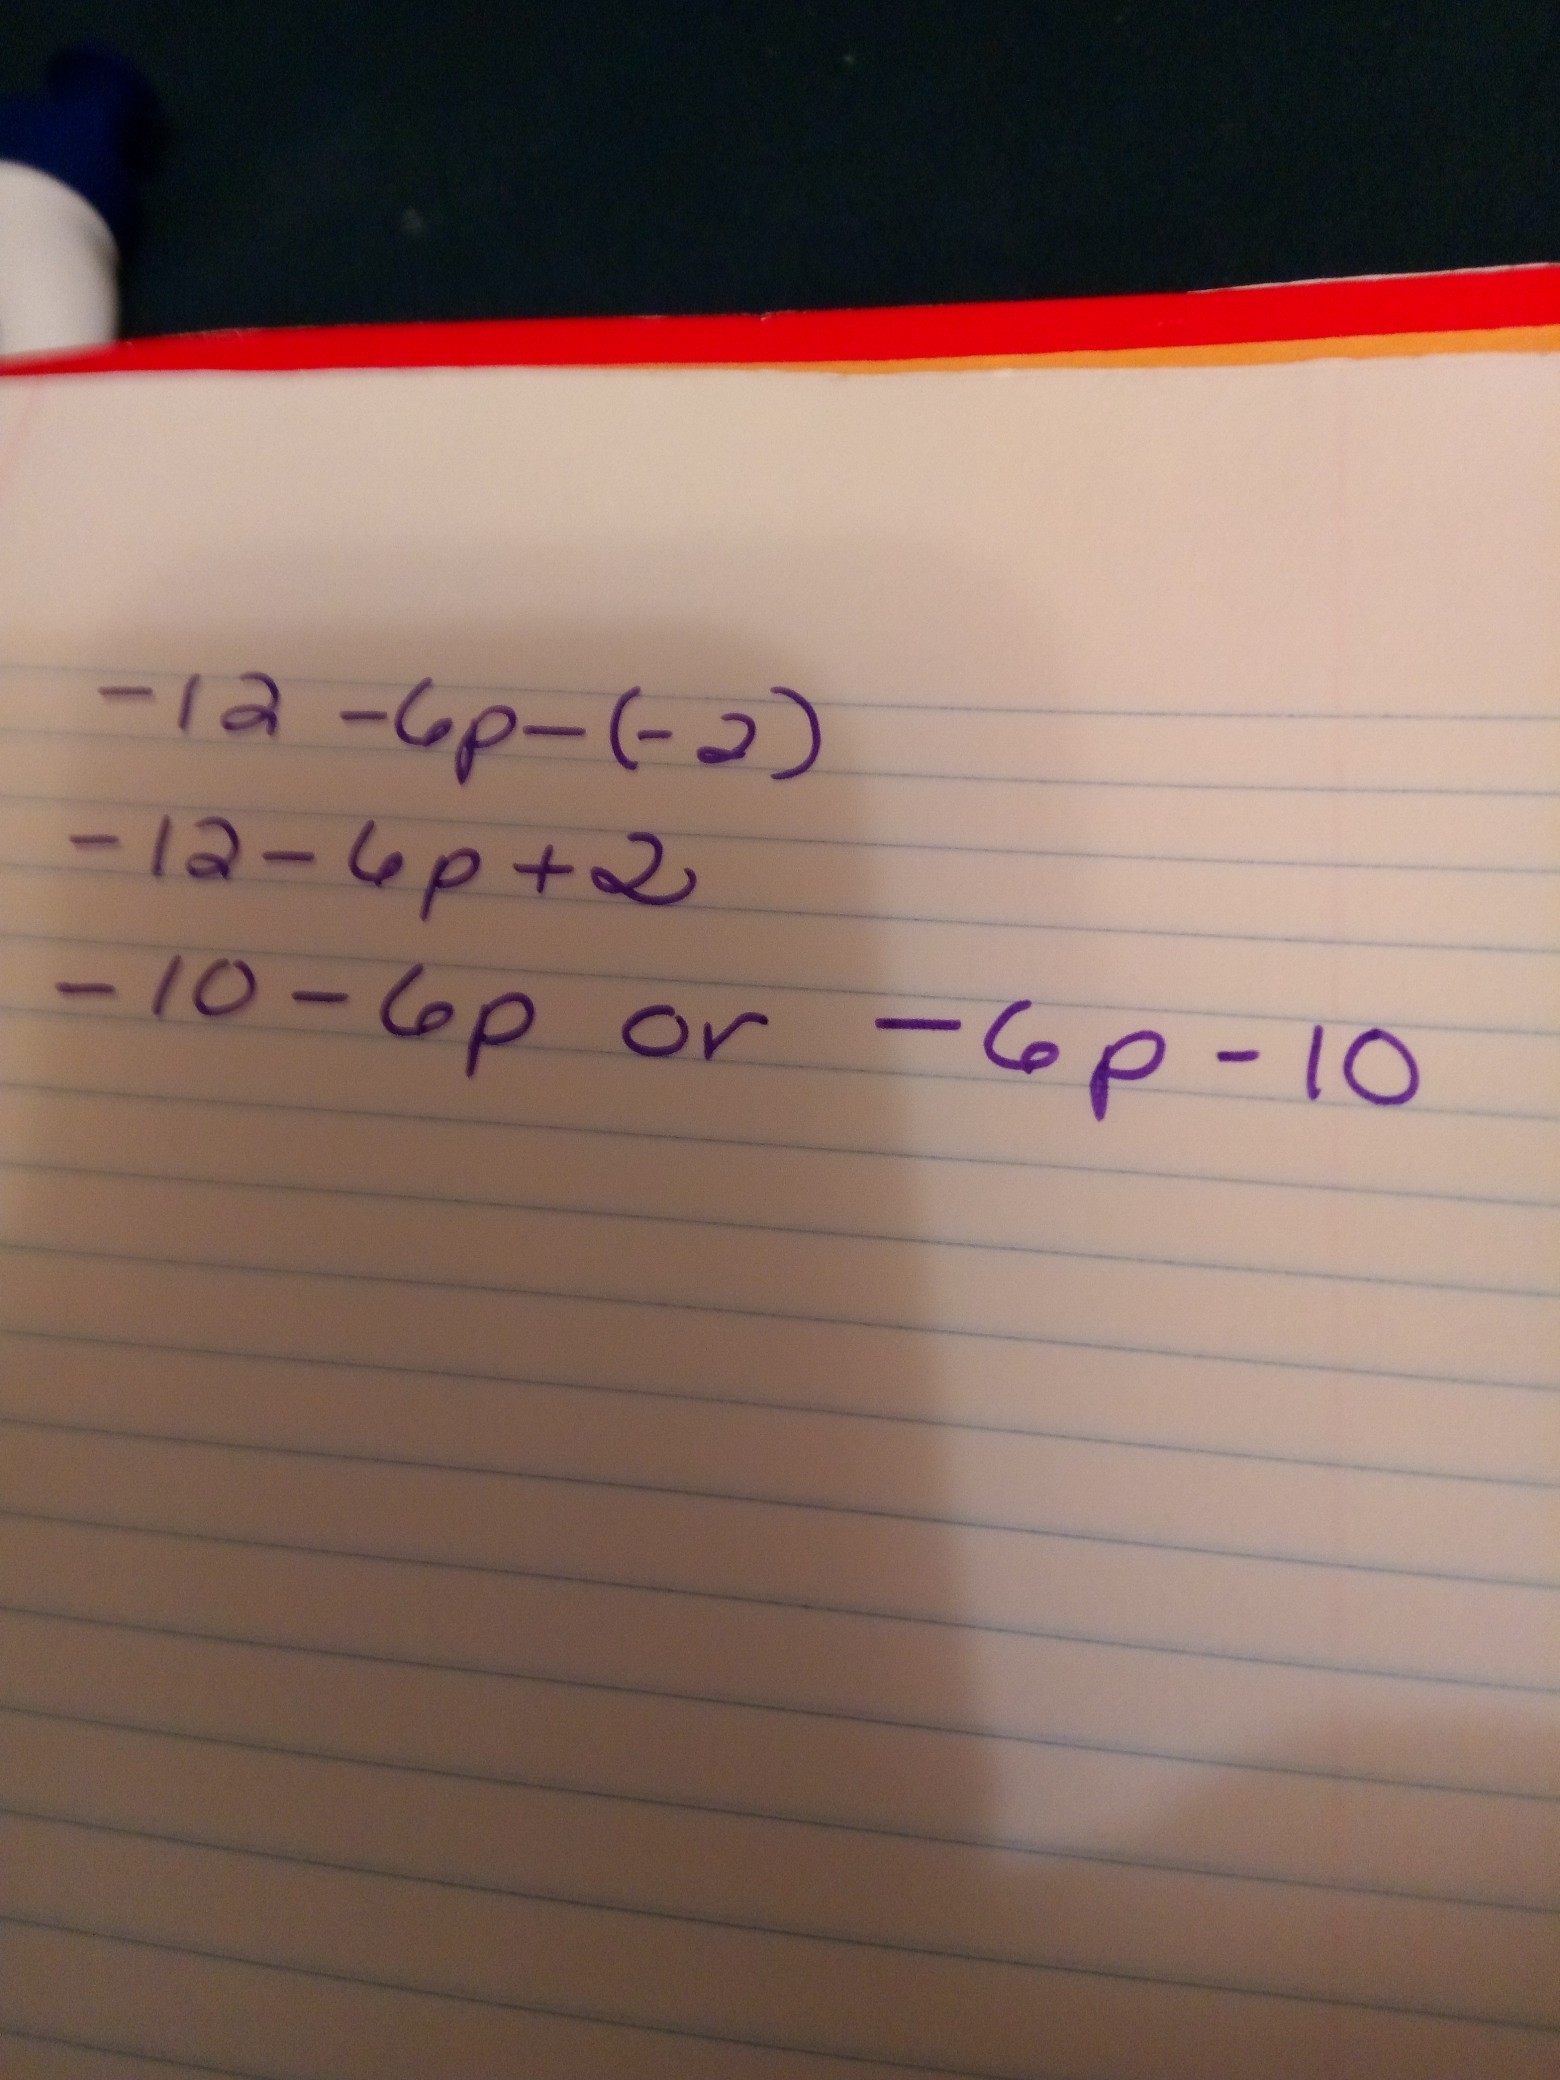 -12 -6p-(-2)
-12-6p+2
-10-6p or -6p-10